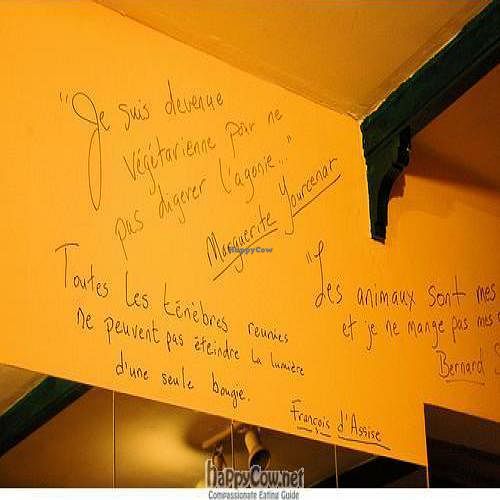 "Je suis devenue
végétarienne pour ne
pas digérer l'agonie..."
Marguerite Yourcenar
HappyCow
Toutes Les ténèbres reunies
ne peuvent pas éteindre La Lumière
d'une seule bougie.
François d'Assise
"Les animaux sont mes
et je ne mange pas mes
Bernard S
HappyCow.net
Compassionate Eating Guide